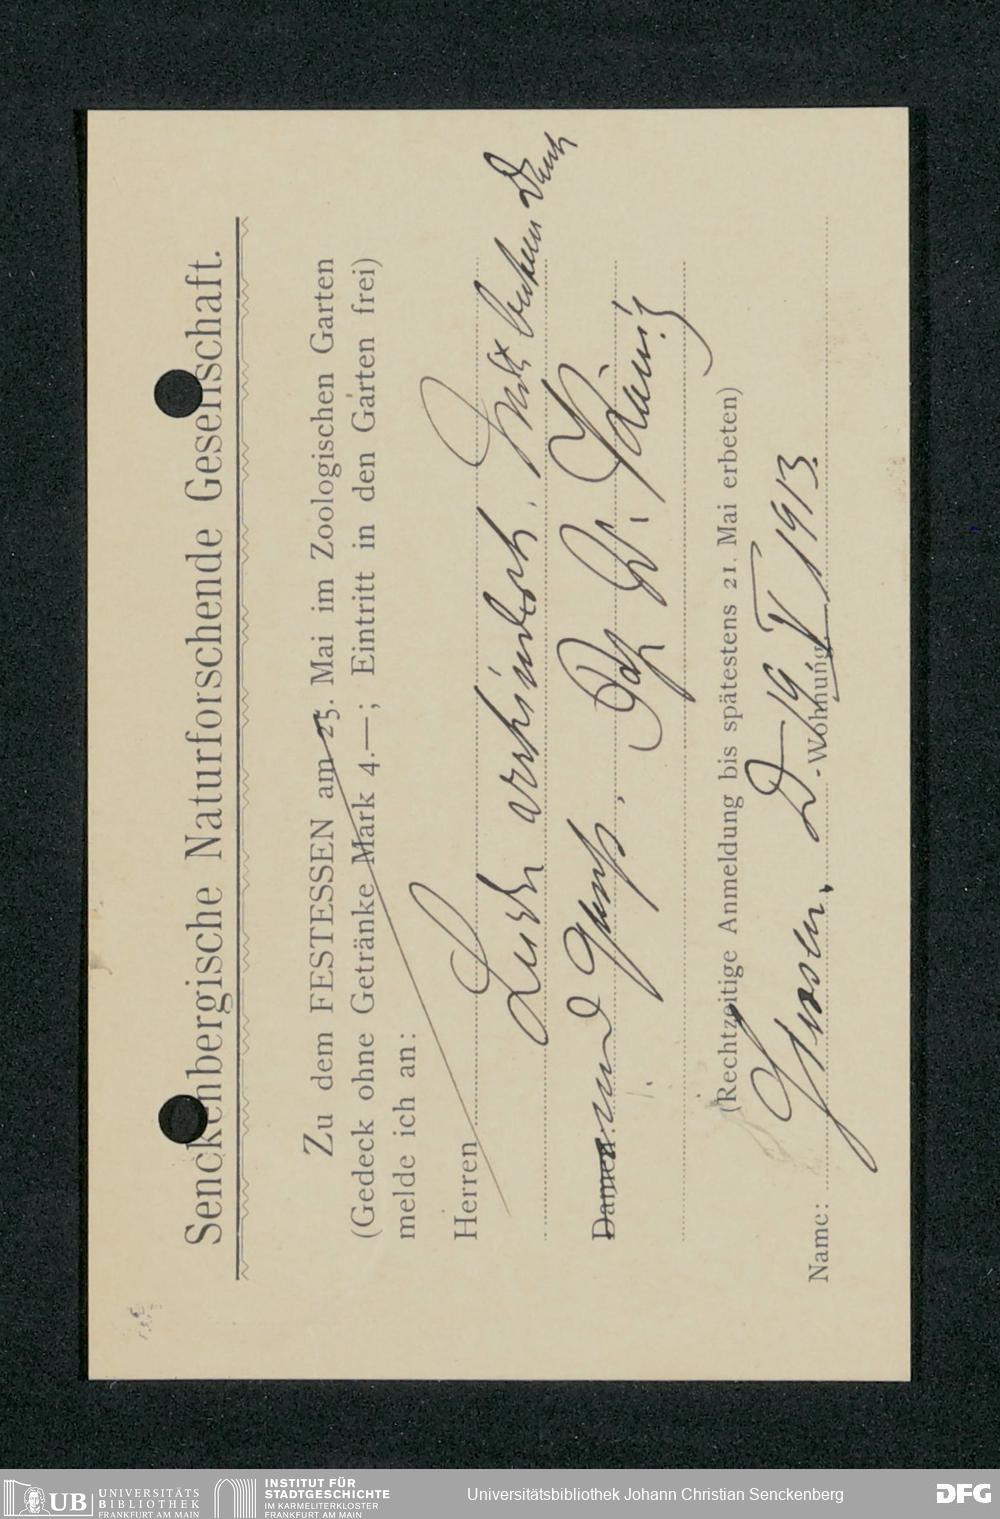 Senckenbergische Naturforschende Gesellschaft.
Zu dem FESTESSEN am 25. Mai im Zoologischen Garten
(Gedeck ohne Getränke Mark 4.—; Eintritt in den Garten frei)
melde ich an:
Herren
Leider verhindert. Mit bestem Dank
Damen: und Gruß,
(Rechtzeitige Anmeldung bis spätestens 21. Mai erbeten)
Name: Giessen, D. 19. V 1913.
Wohnung
UB UNIVERSITÄTS
BIBLIOTHEK
FRANKFURT AM MAIN
INSTITUT FÜR
STADTGESCHICHTE
IM KARMELITERKLOSTER
FRANKFURT AM MAIN
Universitätsbibliothek Johann Christian Senckenberg
DFG